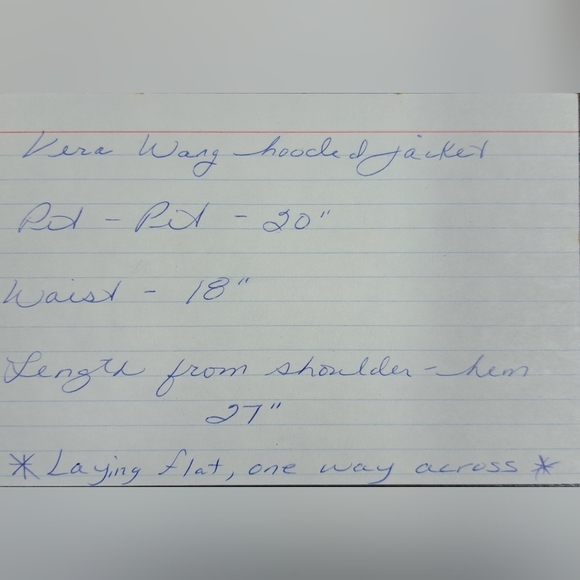 Vera Wang hooded jacket
Pit - Pit - 20"
Waist - 18"
Length from shoulder - hem
27"
* Laying flat, one way across *